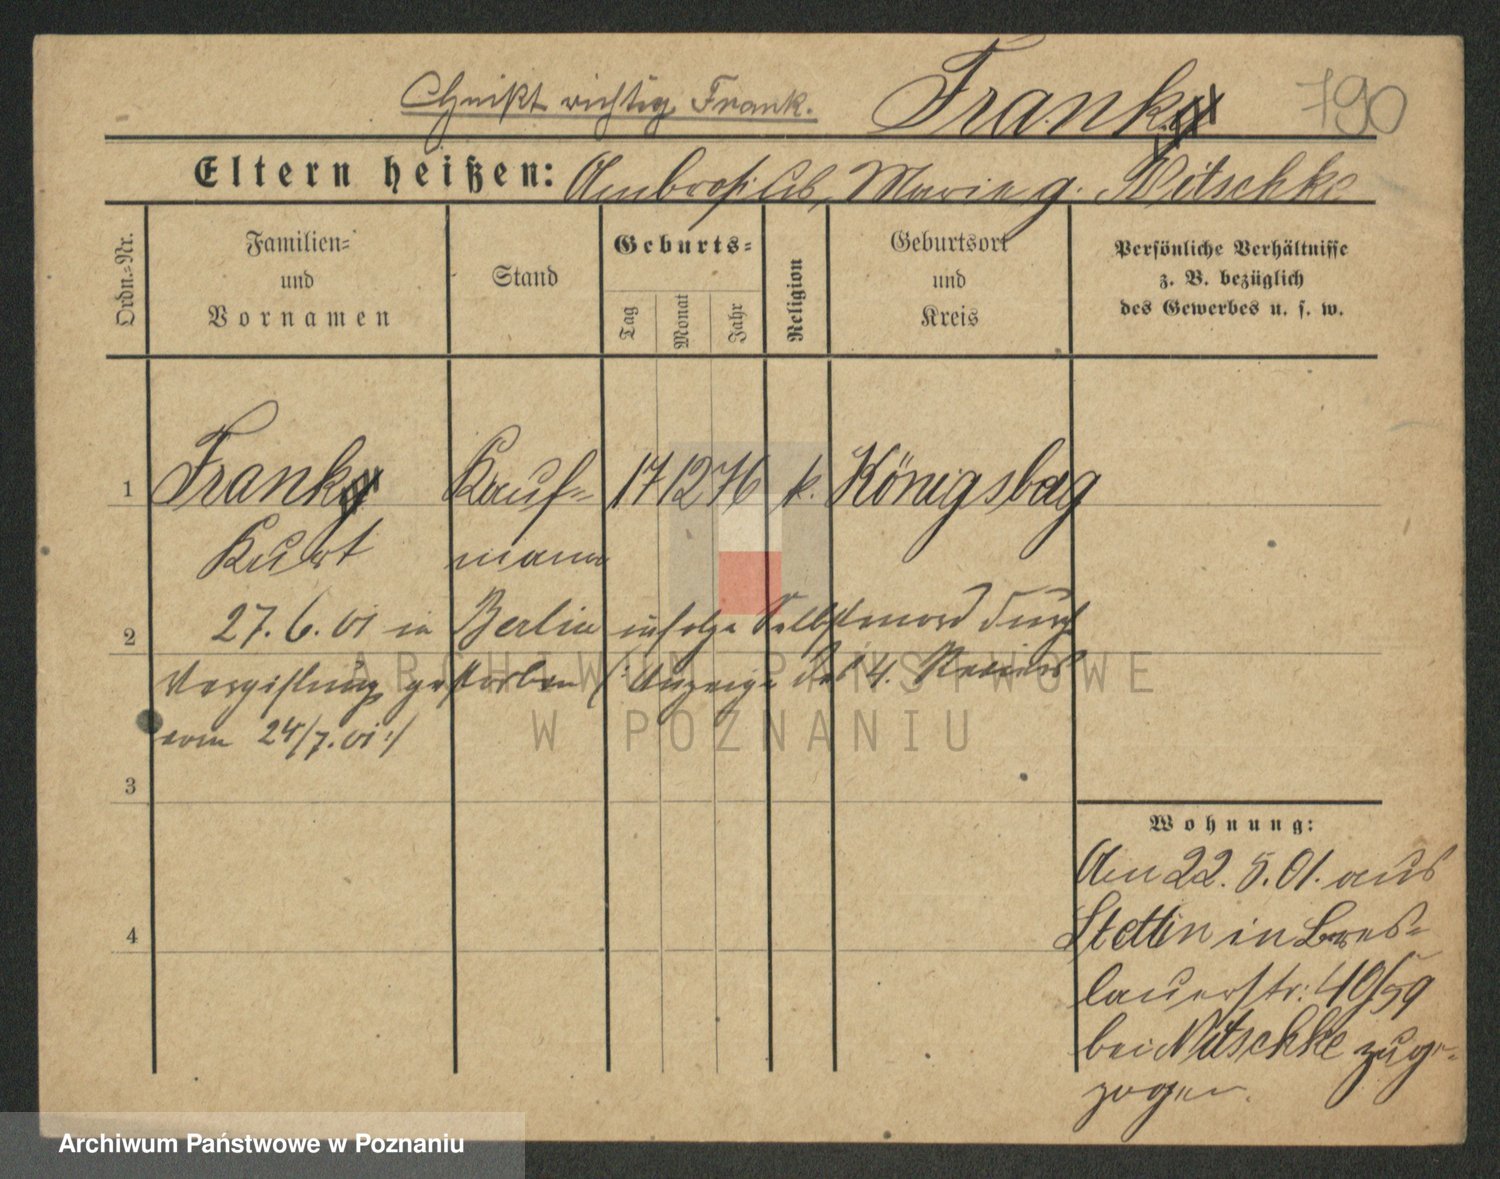 heißt richtig Frank. Frank 190
Eltern heißen: Ambrosius, Marie g. Nitschke
Ordn.-Nr.
Familien-
und
Vornamen
Stand
Geburts-
Tag
Monat
Jahr
Religion
Geburtsort
und
Kreis
Persönliche Verhältnisse
z. B. bezüglich
des Gewerbes u. s. w.
1 Frank Kauf= 17 12 76 k. Königsberg
Kurt mann
2 27. 6. 01 in Berlin infolge Selbstmord durch
Vergiftung gestorben (: Anzeige des 4. Reviers
vom 24/7. 01 :)
3
4
Wohnung:
Am 22. 5. 01. aus
Stettin in Bres=
lauerstr: 40/59
bei Nitschke zuge=
zogen.
ARCHIWUM PAŃSTWOWE
W POZNANIU
Archiwum Państwowe w Poznaniu